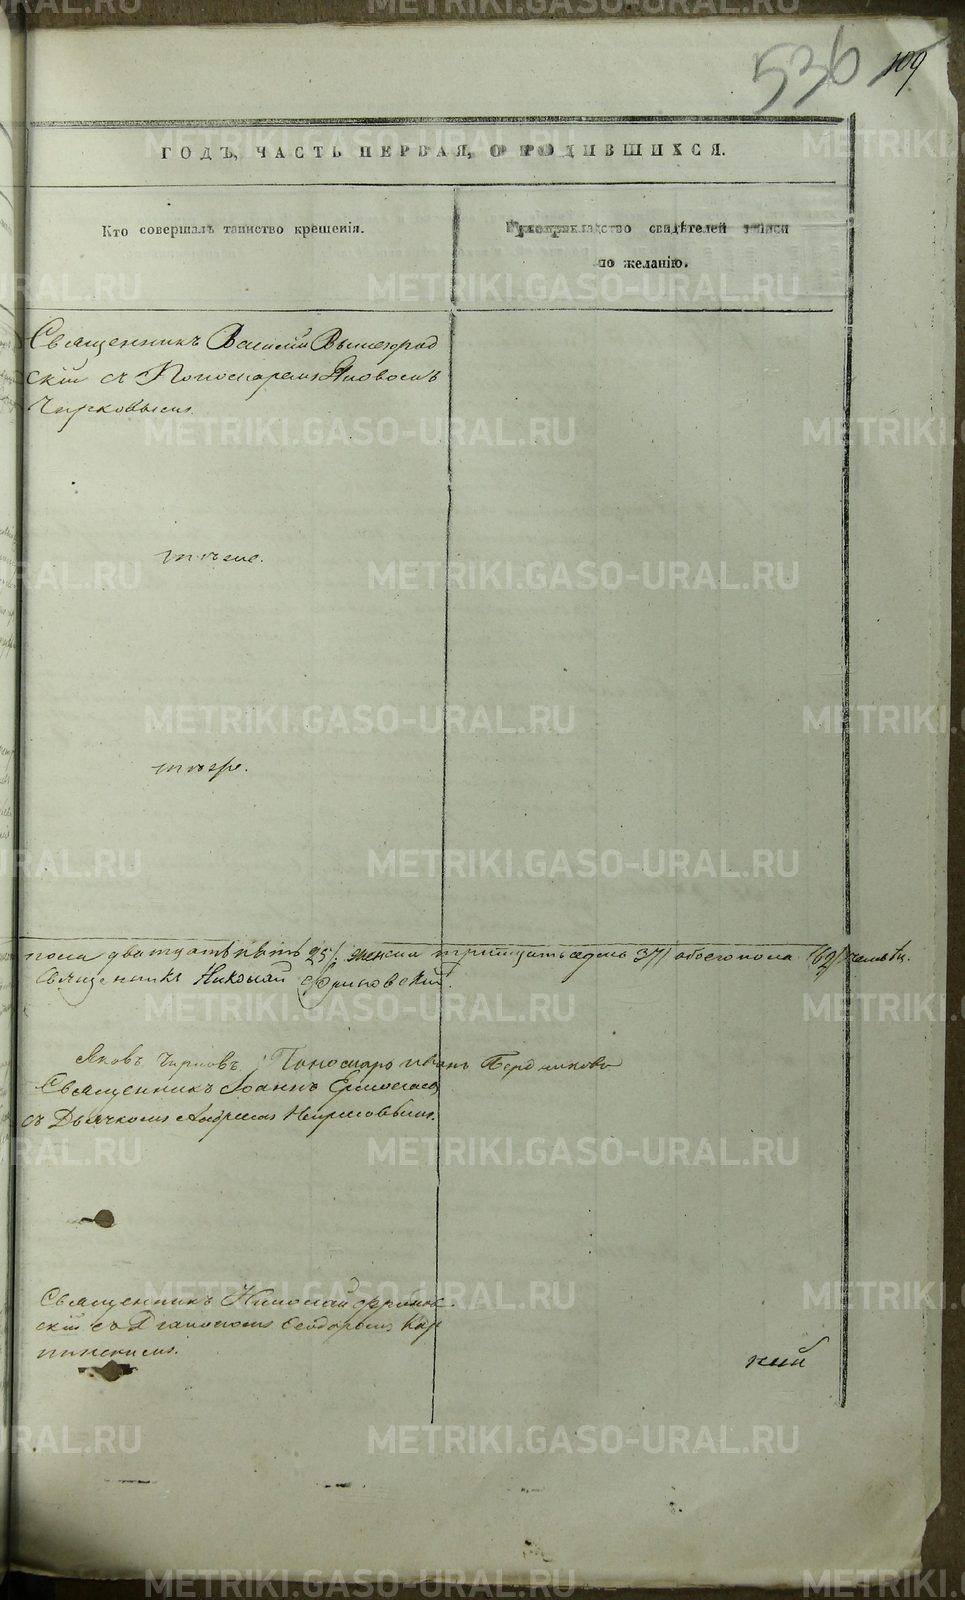 536 109
ГОДЪ, ЧАСТЬ ПЕРВАЯ, О РОДИВШИХСЯ.
Кто совершалъ таинство крещенія.
Рукоприкладство свидѣтелей записи
по желанію.
Священникъ Василій Вышеград
скій съ Пономаремъ Яковомъ
Чирковымъ.
тѣже.
тѣже.
пола двадцать пять 25/. женска тридцать седмь 37/ обоего пола /62/ человѣк.
Священникъ Николай
Яковъ Чирковъ; Пономарь Иванъ Бердниковъ
Священникъ Іоаннъ
съ Дьячкомъ Андреемъ
Священникъ Николай
скій съ Діакономъ Ѳеодоромъ Кар
пинскимъ.
кий
METRIKI.GASO-URAL.RU